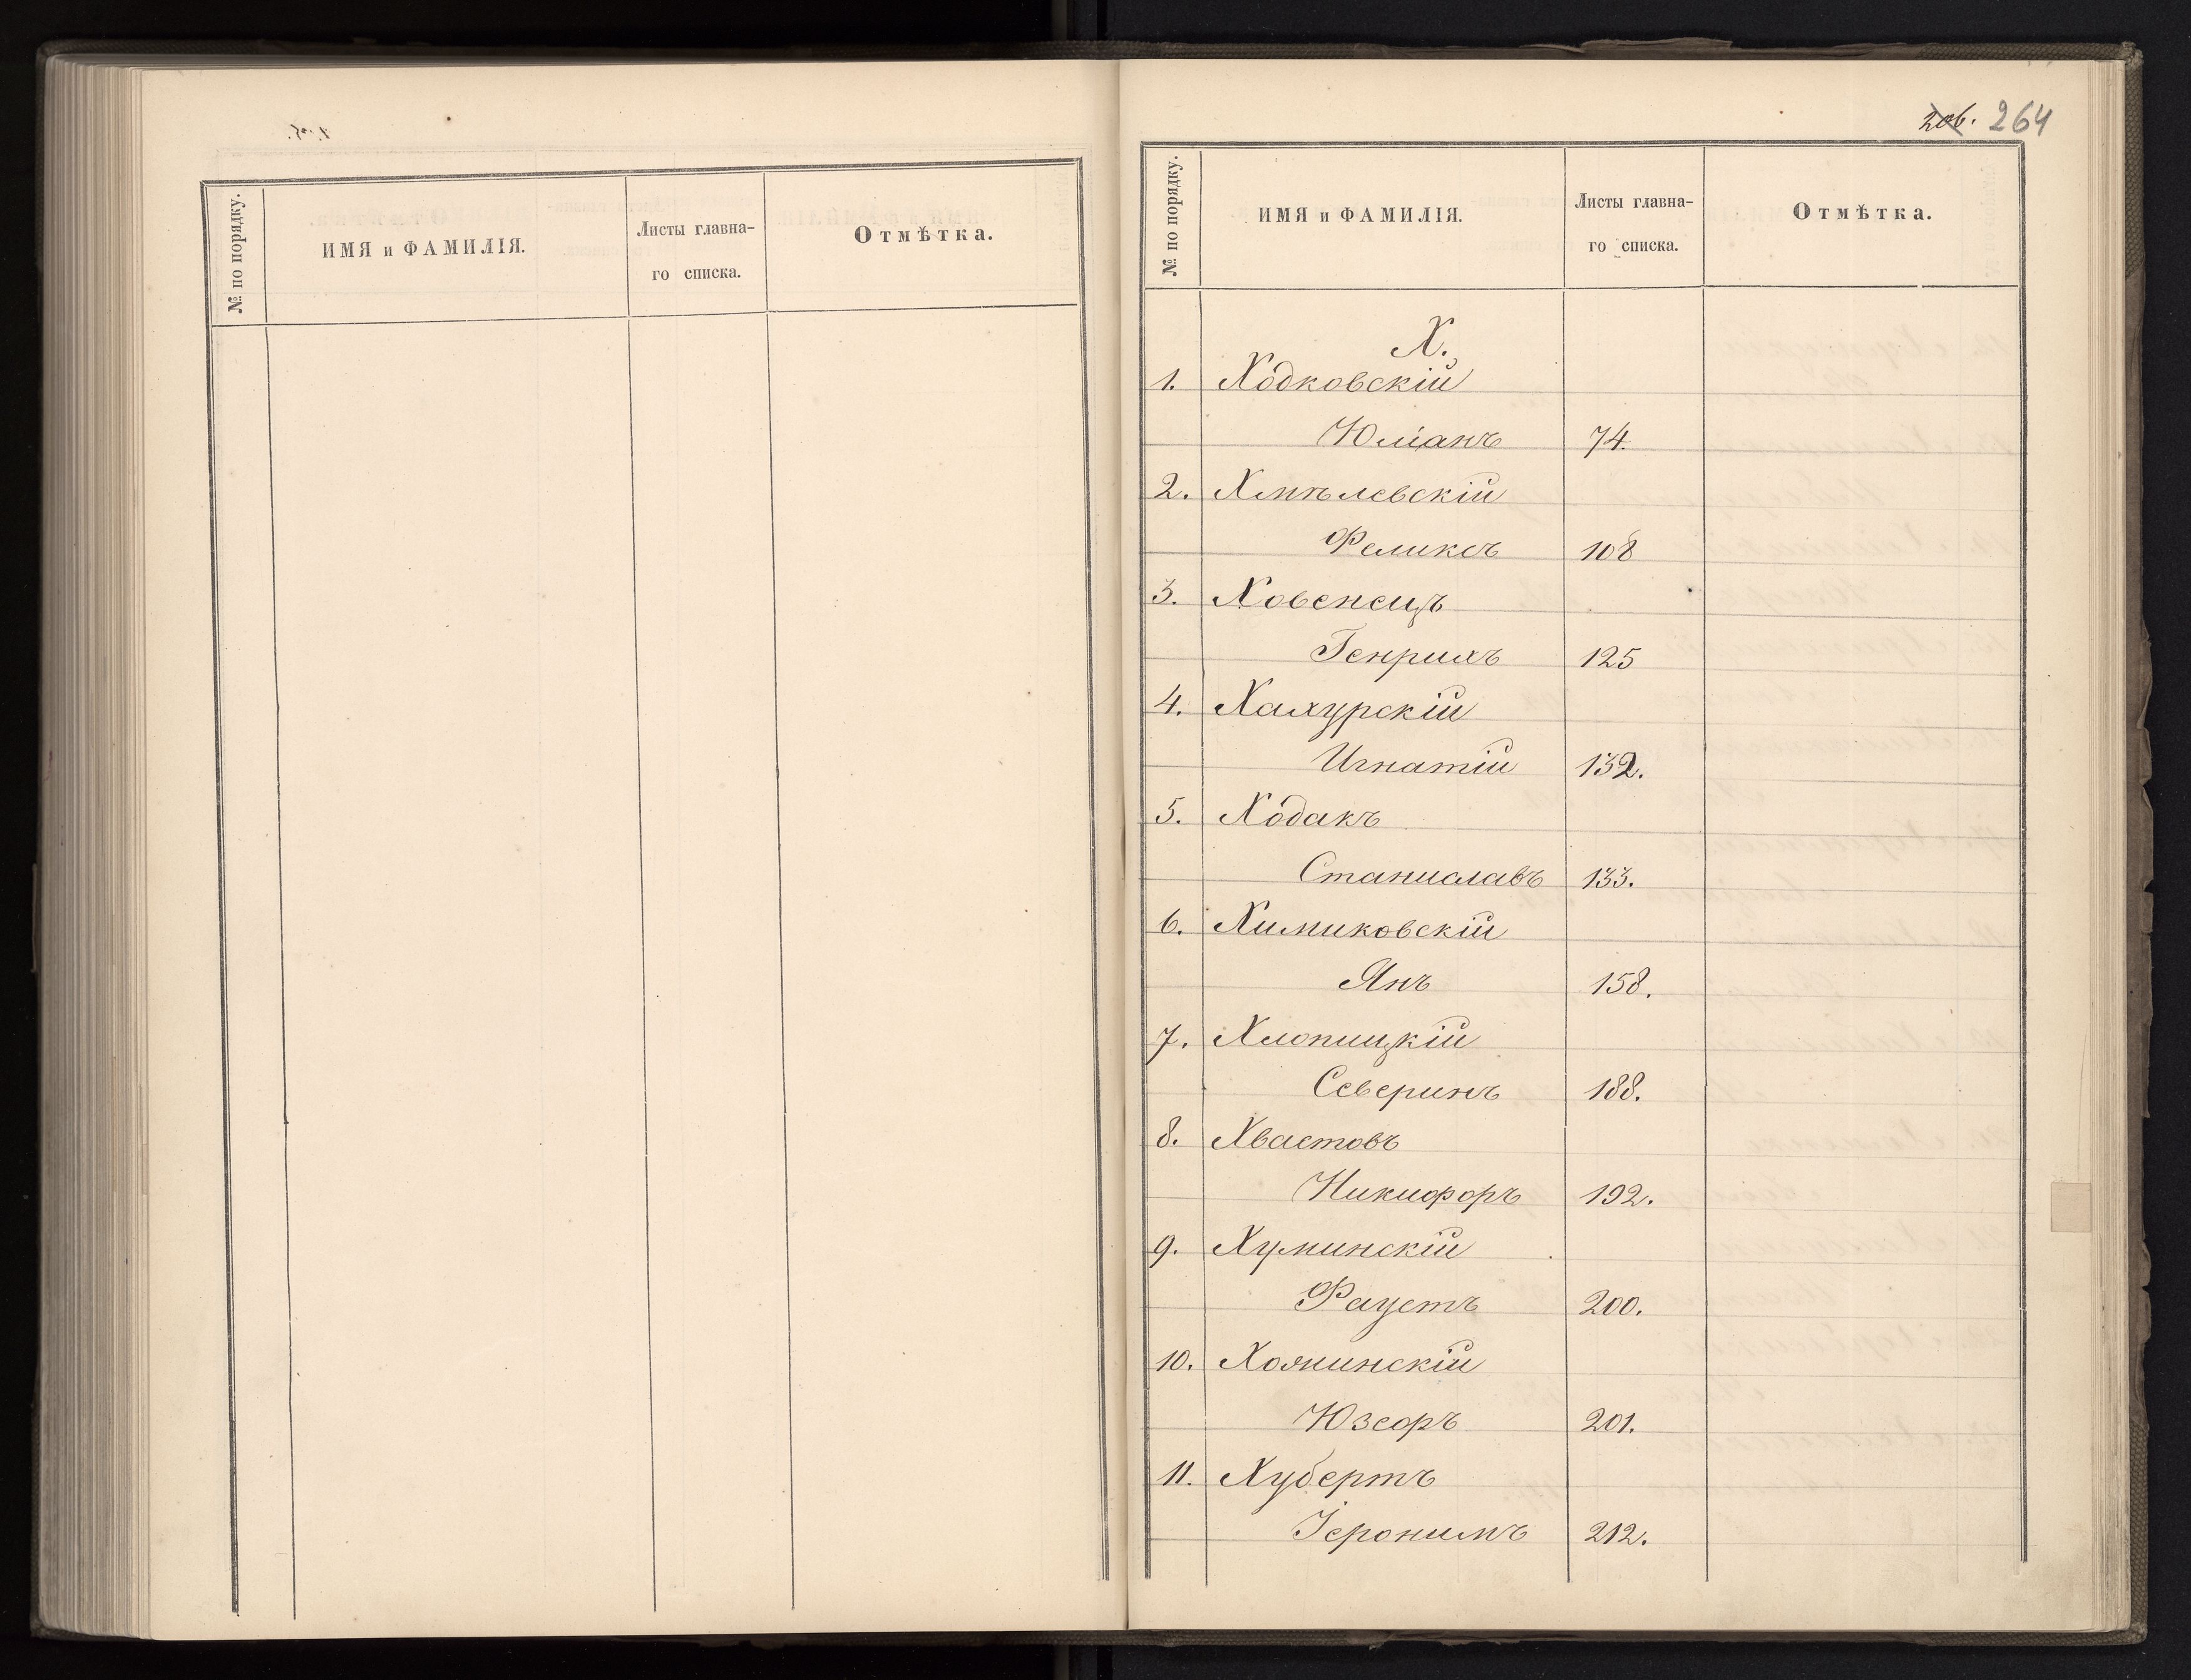 № по порядку.
ИМЯ и ФАМИЛІЯ.
Листы главна-
го списка.
Отмѣтка.
206. 264
№ по порядку.
ИМЯ и ФАМИЛІЯ.
Листы главна-
го списка.
Отмѣтка.
Х.
1. Ходковскій
Юліанъ 74.
2. Хмѣлевскій
Феликсъ 108
3. Ховенецъ
Генрихъ 125
4. Хахурскій
Игнатій 132.
5. Ходакъ
Станиславъ 133.
6. Химиковскій
Янъ 158.
7. Хлопицкій
Северинъ 188.
8. Хвастовъ
Никифоръ 192.
9. Хуминскій
Фаустъ 200.
10. Хоминскій
Юзефъ 201.
11. Хубертъ
Іеронимъ 212.